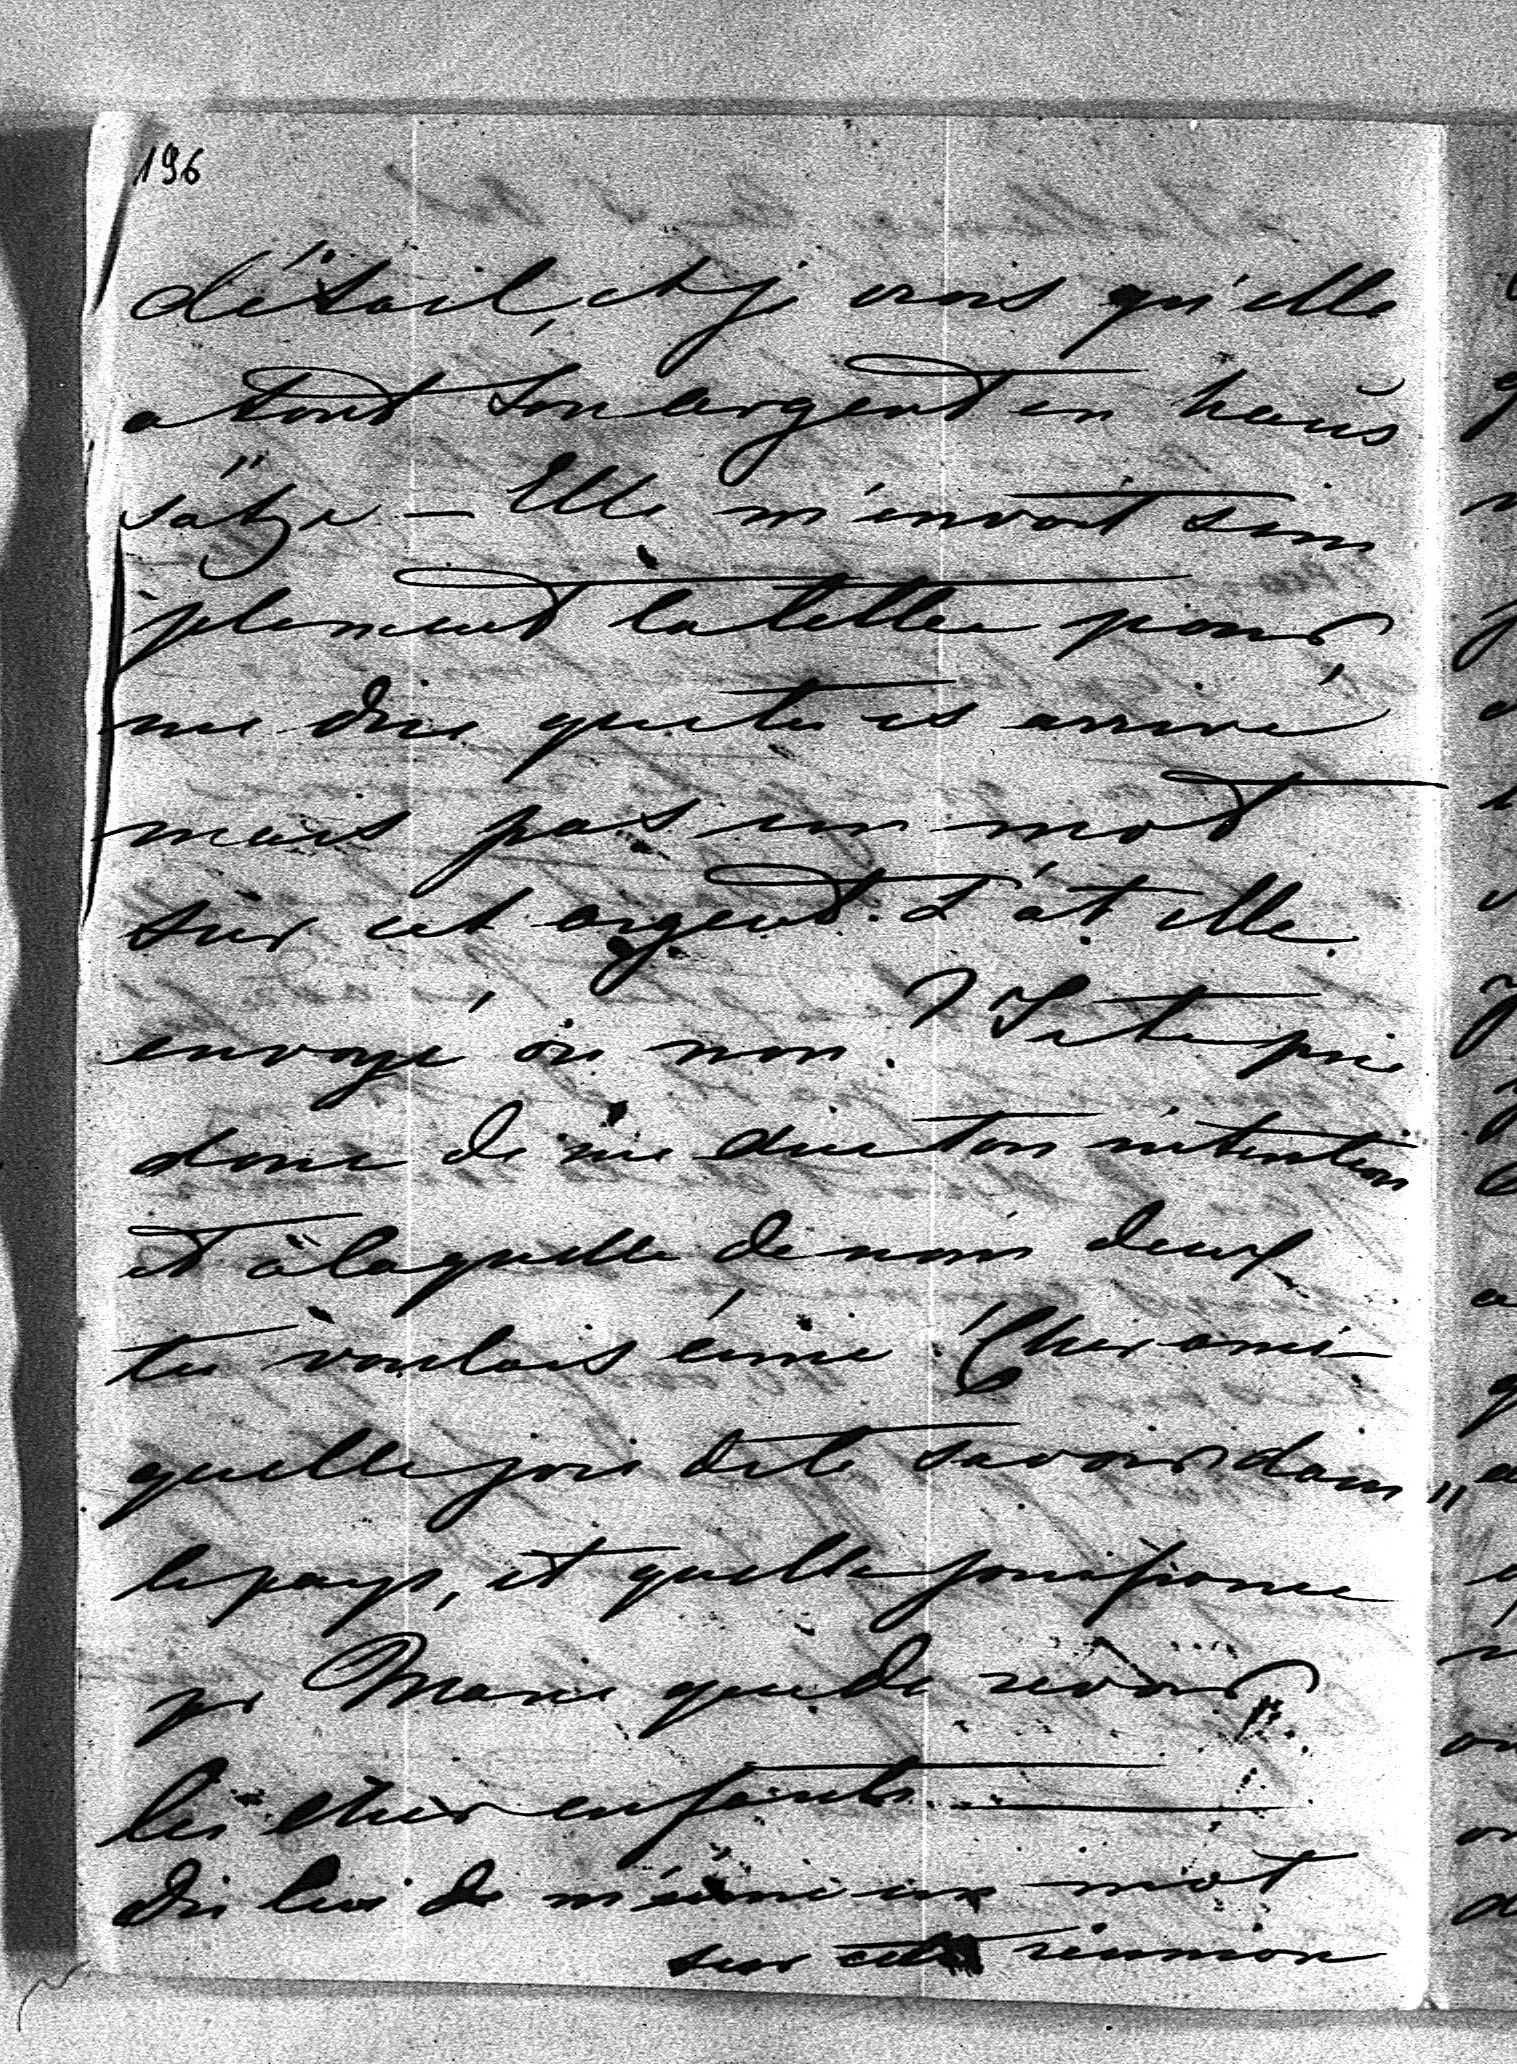 196
détail, et je crois qu'elle
a tout son argent en haus
sätze — Elle m'envoit sim
plement la lettre pour
me dire que tu es arrivé
mais pas un mot
sur cet argent. L'at elle
envoyé ou non ? Je te prie
donc de me dire ton intention
et à laquelle de nous deux
tu voulais écrire. Cher ami
quelle joie de te savoir dans
le pays, et quelle jouissance
pr Marie que de revoir
les chers enfants. —
dis lui de m'écrire un mot
sur cette réunion